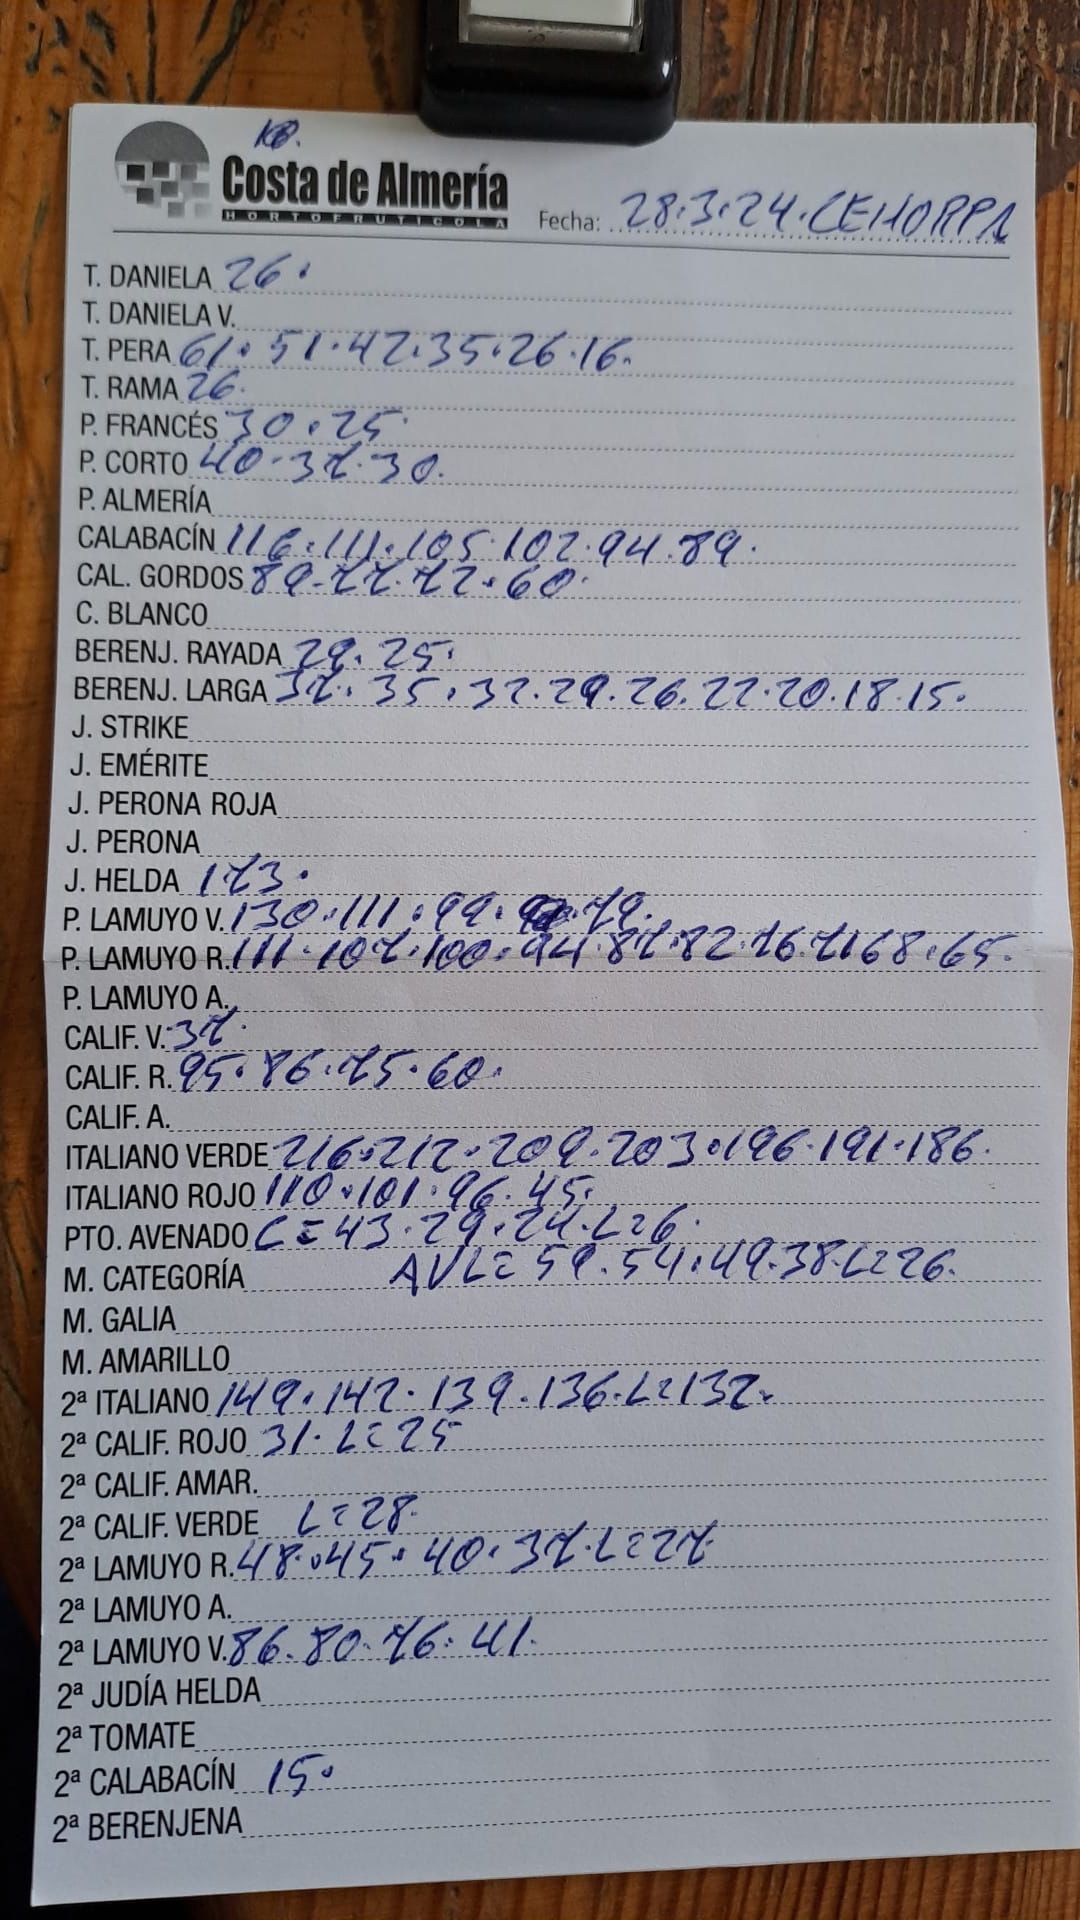 Costa de Almería
HORTOFRUTICOLA
Fecha: 28.3.24.CEHORPA
T. DANIELA 26.
T. DANIELA V.
T. PERA 61.51.42.35.26.16.
T. RAMA 26.
P. FRANCÉS 30.25.
P. CORTO 40.37.30.
P. ALMERÍA
CALABACÍN 116.111.105.102.94.89.
CAL. GORDOS 89.77.72.60.
C. BLANCO
BERENJ. RAYADA 29.25.
BERENJ. LARGA 37.35.32.29.26.22.20.18.15.
J. STRIKE
J. EMÉRITE
J. PERONA ROJA
J. PERONA
J. HELDA 173.
P. LAMUYO V. 130.111.99. 79.
P. LAMUYO R. 111.107.100.94.87.82.76.71.68.65.
P. LAMUYO A.
CALIF. V. 37.
CALIF. R. 95.86.75.60.
CALIF. A.
ITALIANO VERDE 216.212.209.203.196.191.186.
ITALIANO ROJO 110.101.96.45.
PTO. AVENADO C=43.29.24.L=6.
M. CATEGORÍA AVL=59.54.49.38.L=26.
M. GALIA
M. AMARILLO
2ª ITALIANO 149.142.139.136.L=132.
2ª CALIF. ROJO 31.L=25
2ª CALIF. AMAR.
2ª CALIF. VERDE L=28.
2ª LAMUYO R. 48.45.40.37.L=27.
2ª LAMUYO A.
2ª LAMUYO V. 86.80.76.41.
2ª JUDÍA HELDA
2ª TOMATE
2ª CALABACÍN 15.
2ª BERENJENA